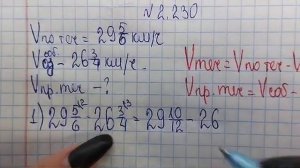 № 2.230
Vпо теч = 29 5/6 км/ч
Vсоб - 26 3/4 км/ч.
Vпр. теч - ?
Vтеч = Vпо теч - V
Vпр. теч = Vсоб -
1) 29 5/6 ² - 26 3/4 ³ = 29 10/12 - 26